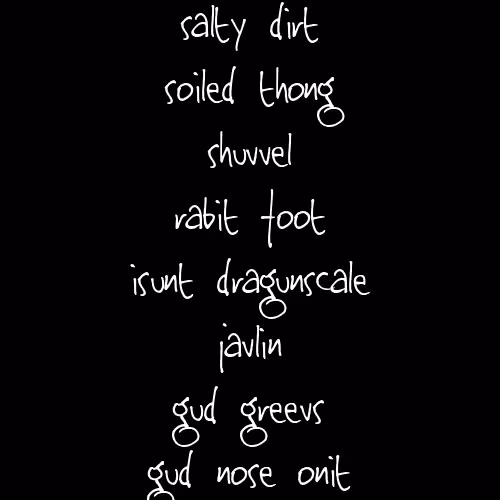 salty dirt
soiled thong
shuvvel
rabit foot
isunt dragunscale
javlin
gud greevs
gud nose onit